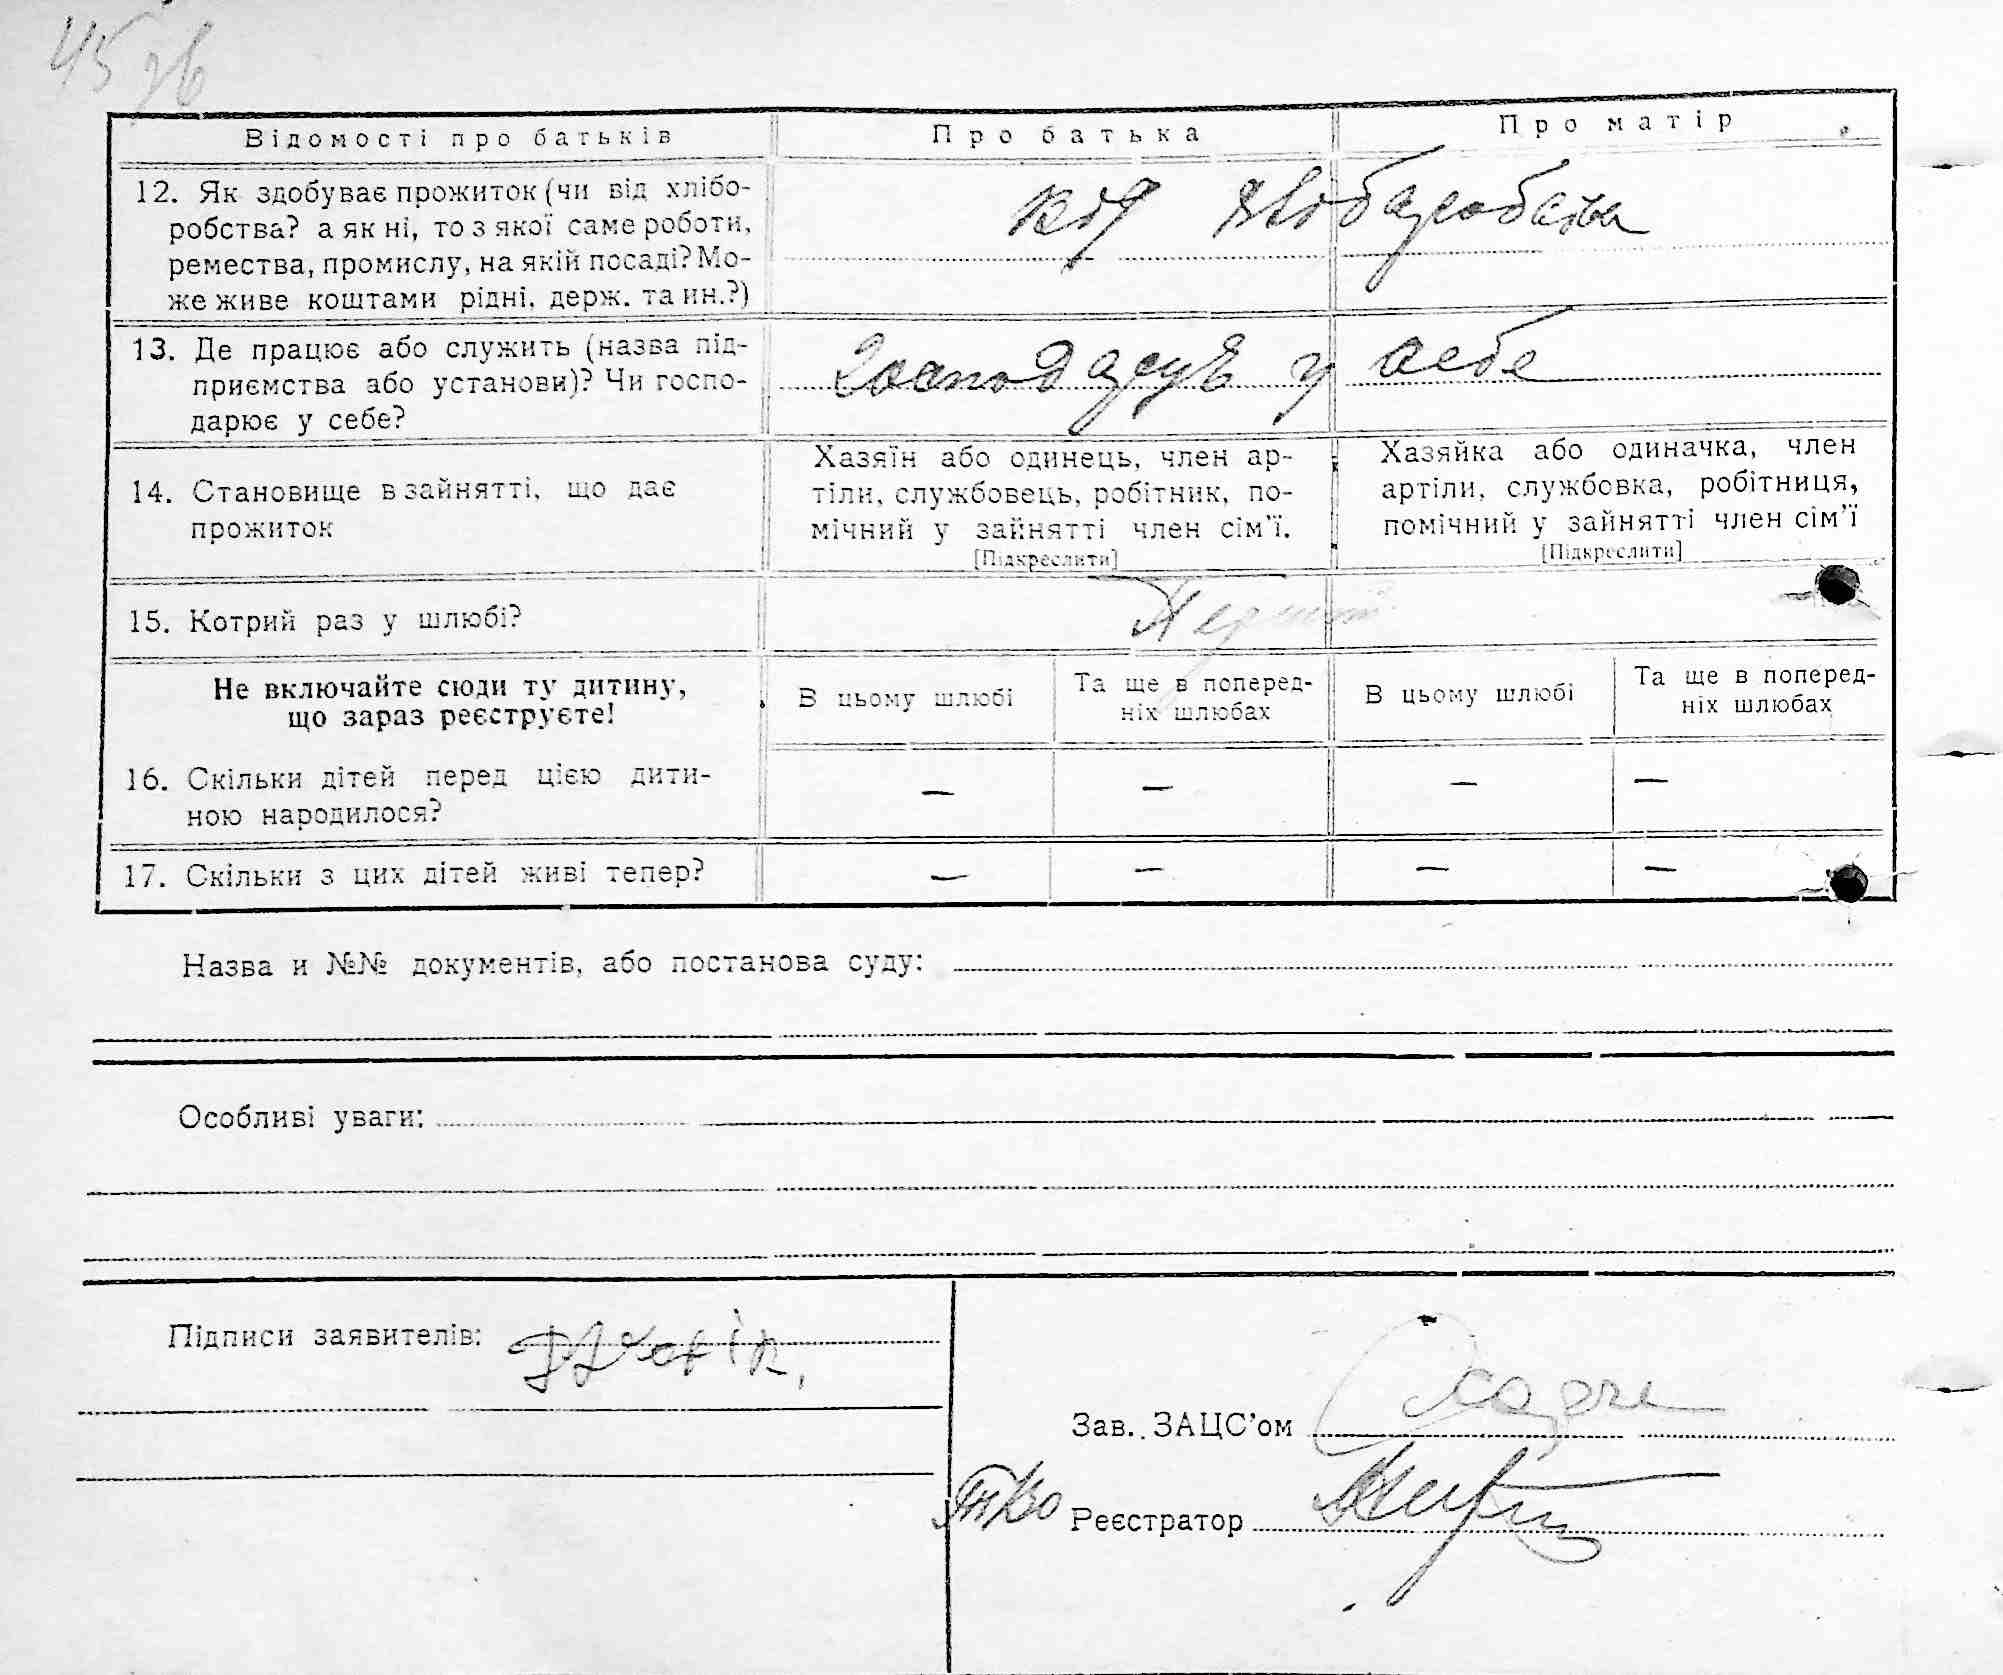 45 зв
Відомості про батьків
Про батька
Про матір
12. Як здобуває прожиток (чи від хлібо-
робства? а як ні, то з якої саме роботи,
ремества, промислу, на якій посаді? Мо-
же живе коштами рідні, держ. та ин.?)
від хліборобства
13. Де працює або служить (назва під-
приємства або установи)? Чи госпо-
дарює у себе?
Господарує у себе
14. Становище в зайнятті, що дає
прожиток
Хазяїн або одинець, член ар-
тіли, службовець, робітник, по-
мічний у зайнятті член сім'ї.
[Підкреслити]
Хазяйка або одиначка, член
артіли, службовка, робітниця,
помічний у зайнятті член сім'ї
[Підкреслити]
15. Котрий раз у шлюбі?
Перший
Не включайте сюди ту дитину,
що зараз реєструєте!
В цьому шлюбі
Та ще в поперед-
ніх шлюбах
В цьому шлюбі
Та ще в поперед-
ніх шлюбах
16. Скільки дітей перед цією дити-
ною народилося?
— — — —
17. Скільки з цих дітей живі тепер?
— — — —
Назва и №№ документів, або постанова суду:
Особливі уваги:
Підписи заявителів:
Зав. ЗАЦС'ом
Реєстратор